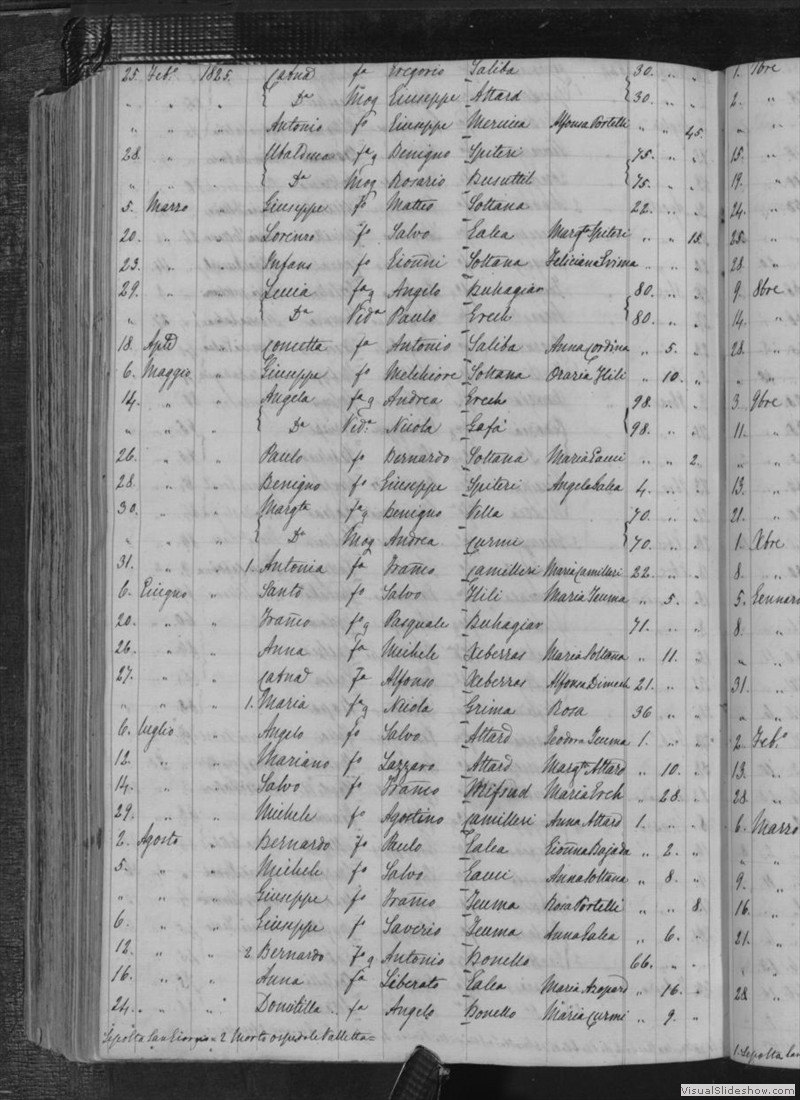 25. Feb.o 1825. Catna fa Gregorio Saliba 30. " " 1. 7bre
" " " Da Mog Giuseppe Attard 30. " " 2. "
" " " Antonio fo Giuseppe Mercieca Alfonsa Portelli " " 45. "
28. " " Ubaldesca fa g Benigno Spiteri 75. " " 15. "
" " " Da Mog Rosario Busuttil 75. " " 19. "
5. Marzo " Giuseppe fo Matteo Soltana 22. " " 24. "
20. " " Lorenzo fo Salvo Galea Margta Spiteri " " 15. 25. "
23. " " Infans fo Gionni Soltana Feliciana Grima " " " 28. "
29. " " Lucia fa g Angelo Buhagiar 80. " " 9. 8bre
" " " Da Veda Paulo Grech 80. " " 14. "
18. Aple " Concetta fa Antonio Saliba Anna Cordina " 5. " 28. "
6. Maggio " Giuseppe fo Melchiore Soltana Orazia Hili " 10. " " "
14. " " Angela fa g Andrea Grech 98. " " 3. 9bre
" " " Da Veda Nicola Gafà 98. " " 11. "
26. " " Paulo fo Bernardo Soltana Maria Cauci " " 2. " "
28. " " Benigno fo Giuseppe Spiteri Angela Galea 4. " " 13. "
30. " " Margta fa g Benigno Vella 70. " " 21. "
" " " Da Mog Andrea Curmi 70. " " 1. Xbre
31. " " 1. Antonia fa Franco Camilleri Maria Camilleri 22. " " 8. "
6. Giugno " Santo fo Salvo Hili Maria Teuma " 5. " 5. Gennaro
20. " " Franco fo g Pasquale Buhagiar 71. " " 8. "
26. " " Anna fa Michele Xeberras Maria Soltana " 11. " " "
27. " " Catna fa Alfonso Xeberras Alfonsa Dimech 21. " " 31. "
" " " 1. Maria fa g Nicola Grima Rosa 36 " " " "
6. Luglio " Angelo fo Salvo Attard Teodora Teuma 1. " " 2. Feb.o
12. " " Mariano fo Lazzaro Attard Margta Attard " 10. " 13. "
14. " " Salvo fo Franco Mifsud Maria Grech " 28. " 28. "
29. " " Michele fo Agostino Camilleri Anna Attard 1. " " 6. Marzo
2. Agosto " Bernardo fo Paulo Galea Gionna Bajada " 2. " " "
5. " " Michele fo Salvo Cauci Anna Soltana " 8. " 9. "
" " " Giuseppe fo Franco Teuma Rosa Portelli " " 8. 16. "
6. " " Giuseppe fo Saverio Teuma Anna Galea " 6. " 21. "
12. " " 2. Bernardo fo g Antonio Bonello 66. " " " "
16. " " Anna fa Liberato Galea Maria Azopard " 16. " 28 "
24. " " Domitilla fa Angelo Bonello Maria Curmi " 9. "
Sepolta San Giorgio = 2 Morto ospedale Valletta = 1. Sepolta San
VisualSlideshow.com